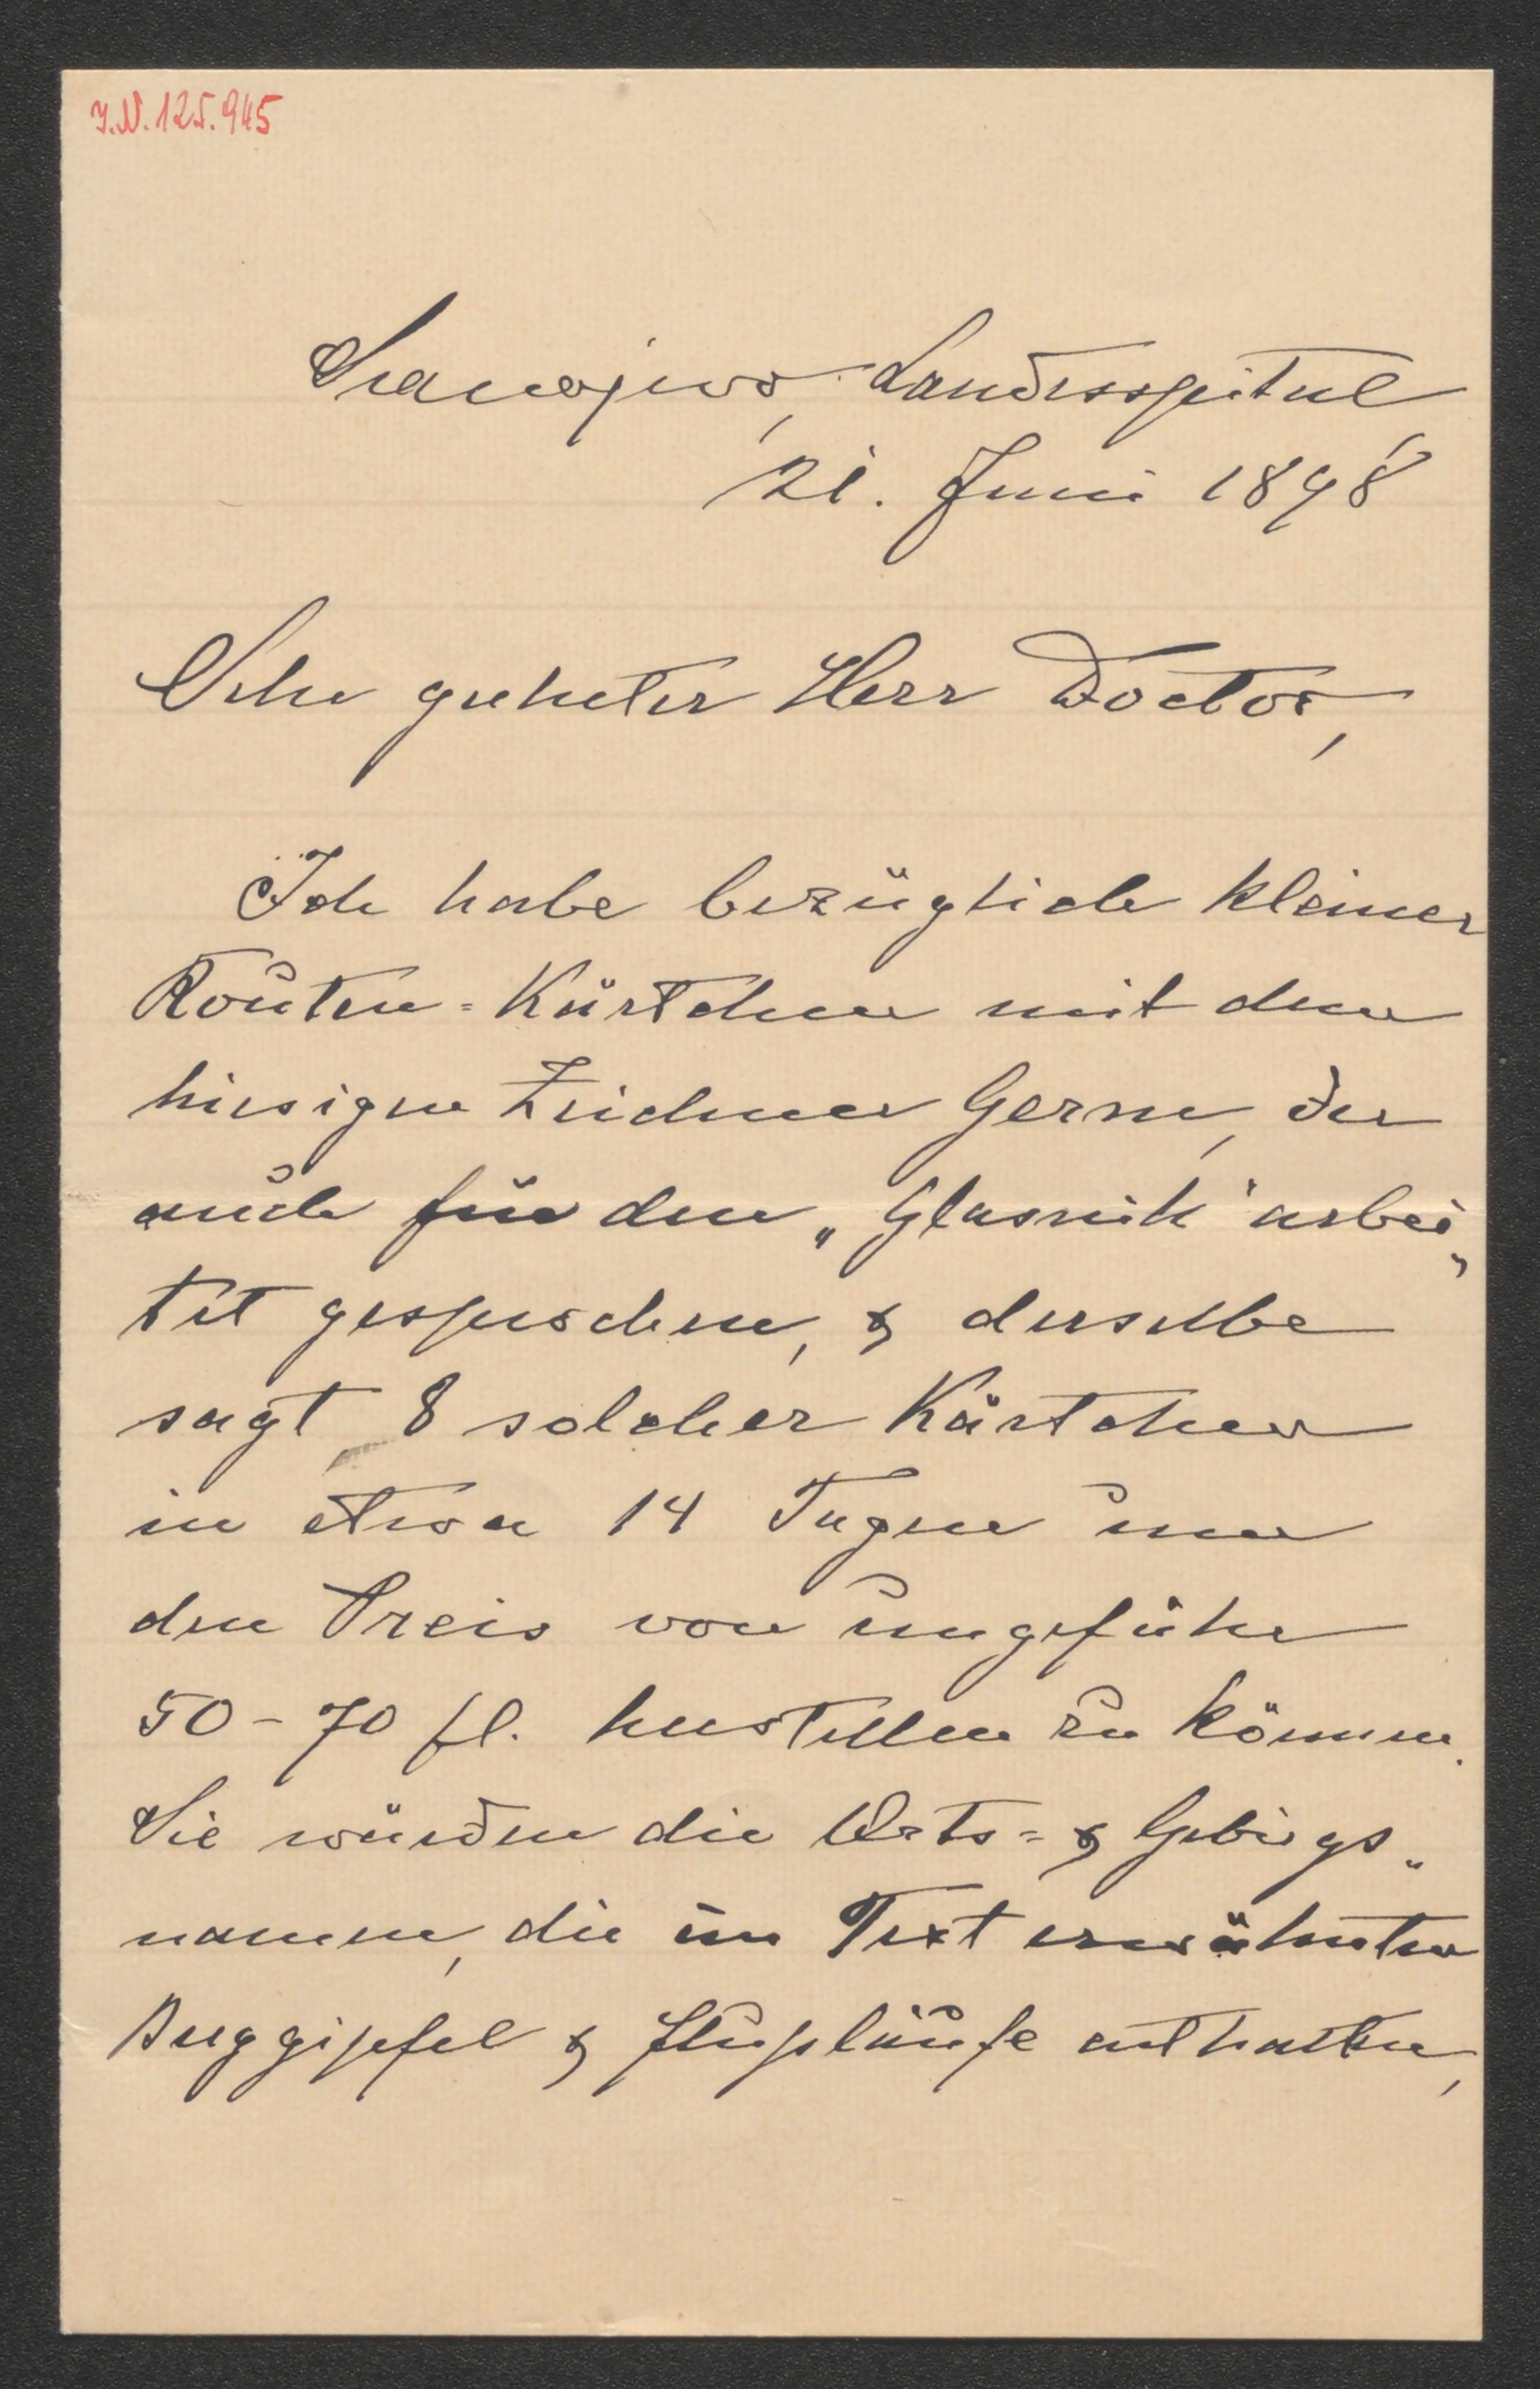 J.N. 125.945
Sarajewo, Landesspital,
21. Juni 1898
Sehr geehrter Herr Doctor,
Ich habe bezüglich kleiner
Routen-Kärtchen mit dem
hiesigen Zeichner Germ, der
auch für den „Glasnik“ arbei„
tet gesprochen, & derselbe
sagt 8 solcher Kärtchen
in etwa 14 Tagen um
den Preis von ungefähr
50-70 fl. herstellen zu können.
Sie würden die Orts- & Gebirgs„
namen, die im Text erwähnten
Berggipfel & Flußläufe enthalten,